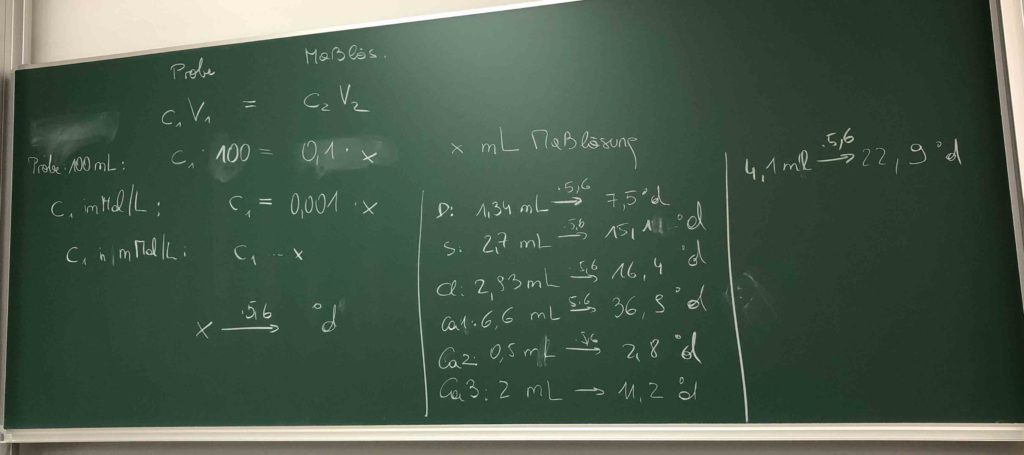 Probe Maßlös.
c₁V₁ = c₂V₂
Probe: 100 mL: c₁ · 100 = 0,1 · x
c₁ in Mol/L: c₁ = 0,001 · x
c₁ in mMol/L: c₁ ... x
x —·5,6→ °d
x mL Maßlösung
D: 1,34 mL —·5,6→ 7,5 °d
S: 2,7 mL —·5,6→ 15,1 °d
Cl: 2,93 mL —·5,6→ 16,4 °d
Ca1: 6,6 mL —5.6→ 36,9 °d
Ca2: 0,5 mL —·5,6→ 2,8 °d
Ca3: 2 mL → 11,2 °d
4,1 ml —·5,6→ 22,9 °d